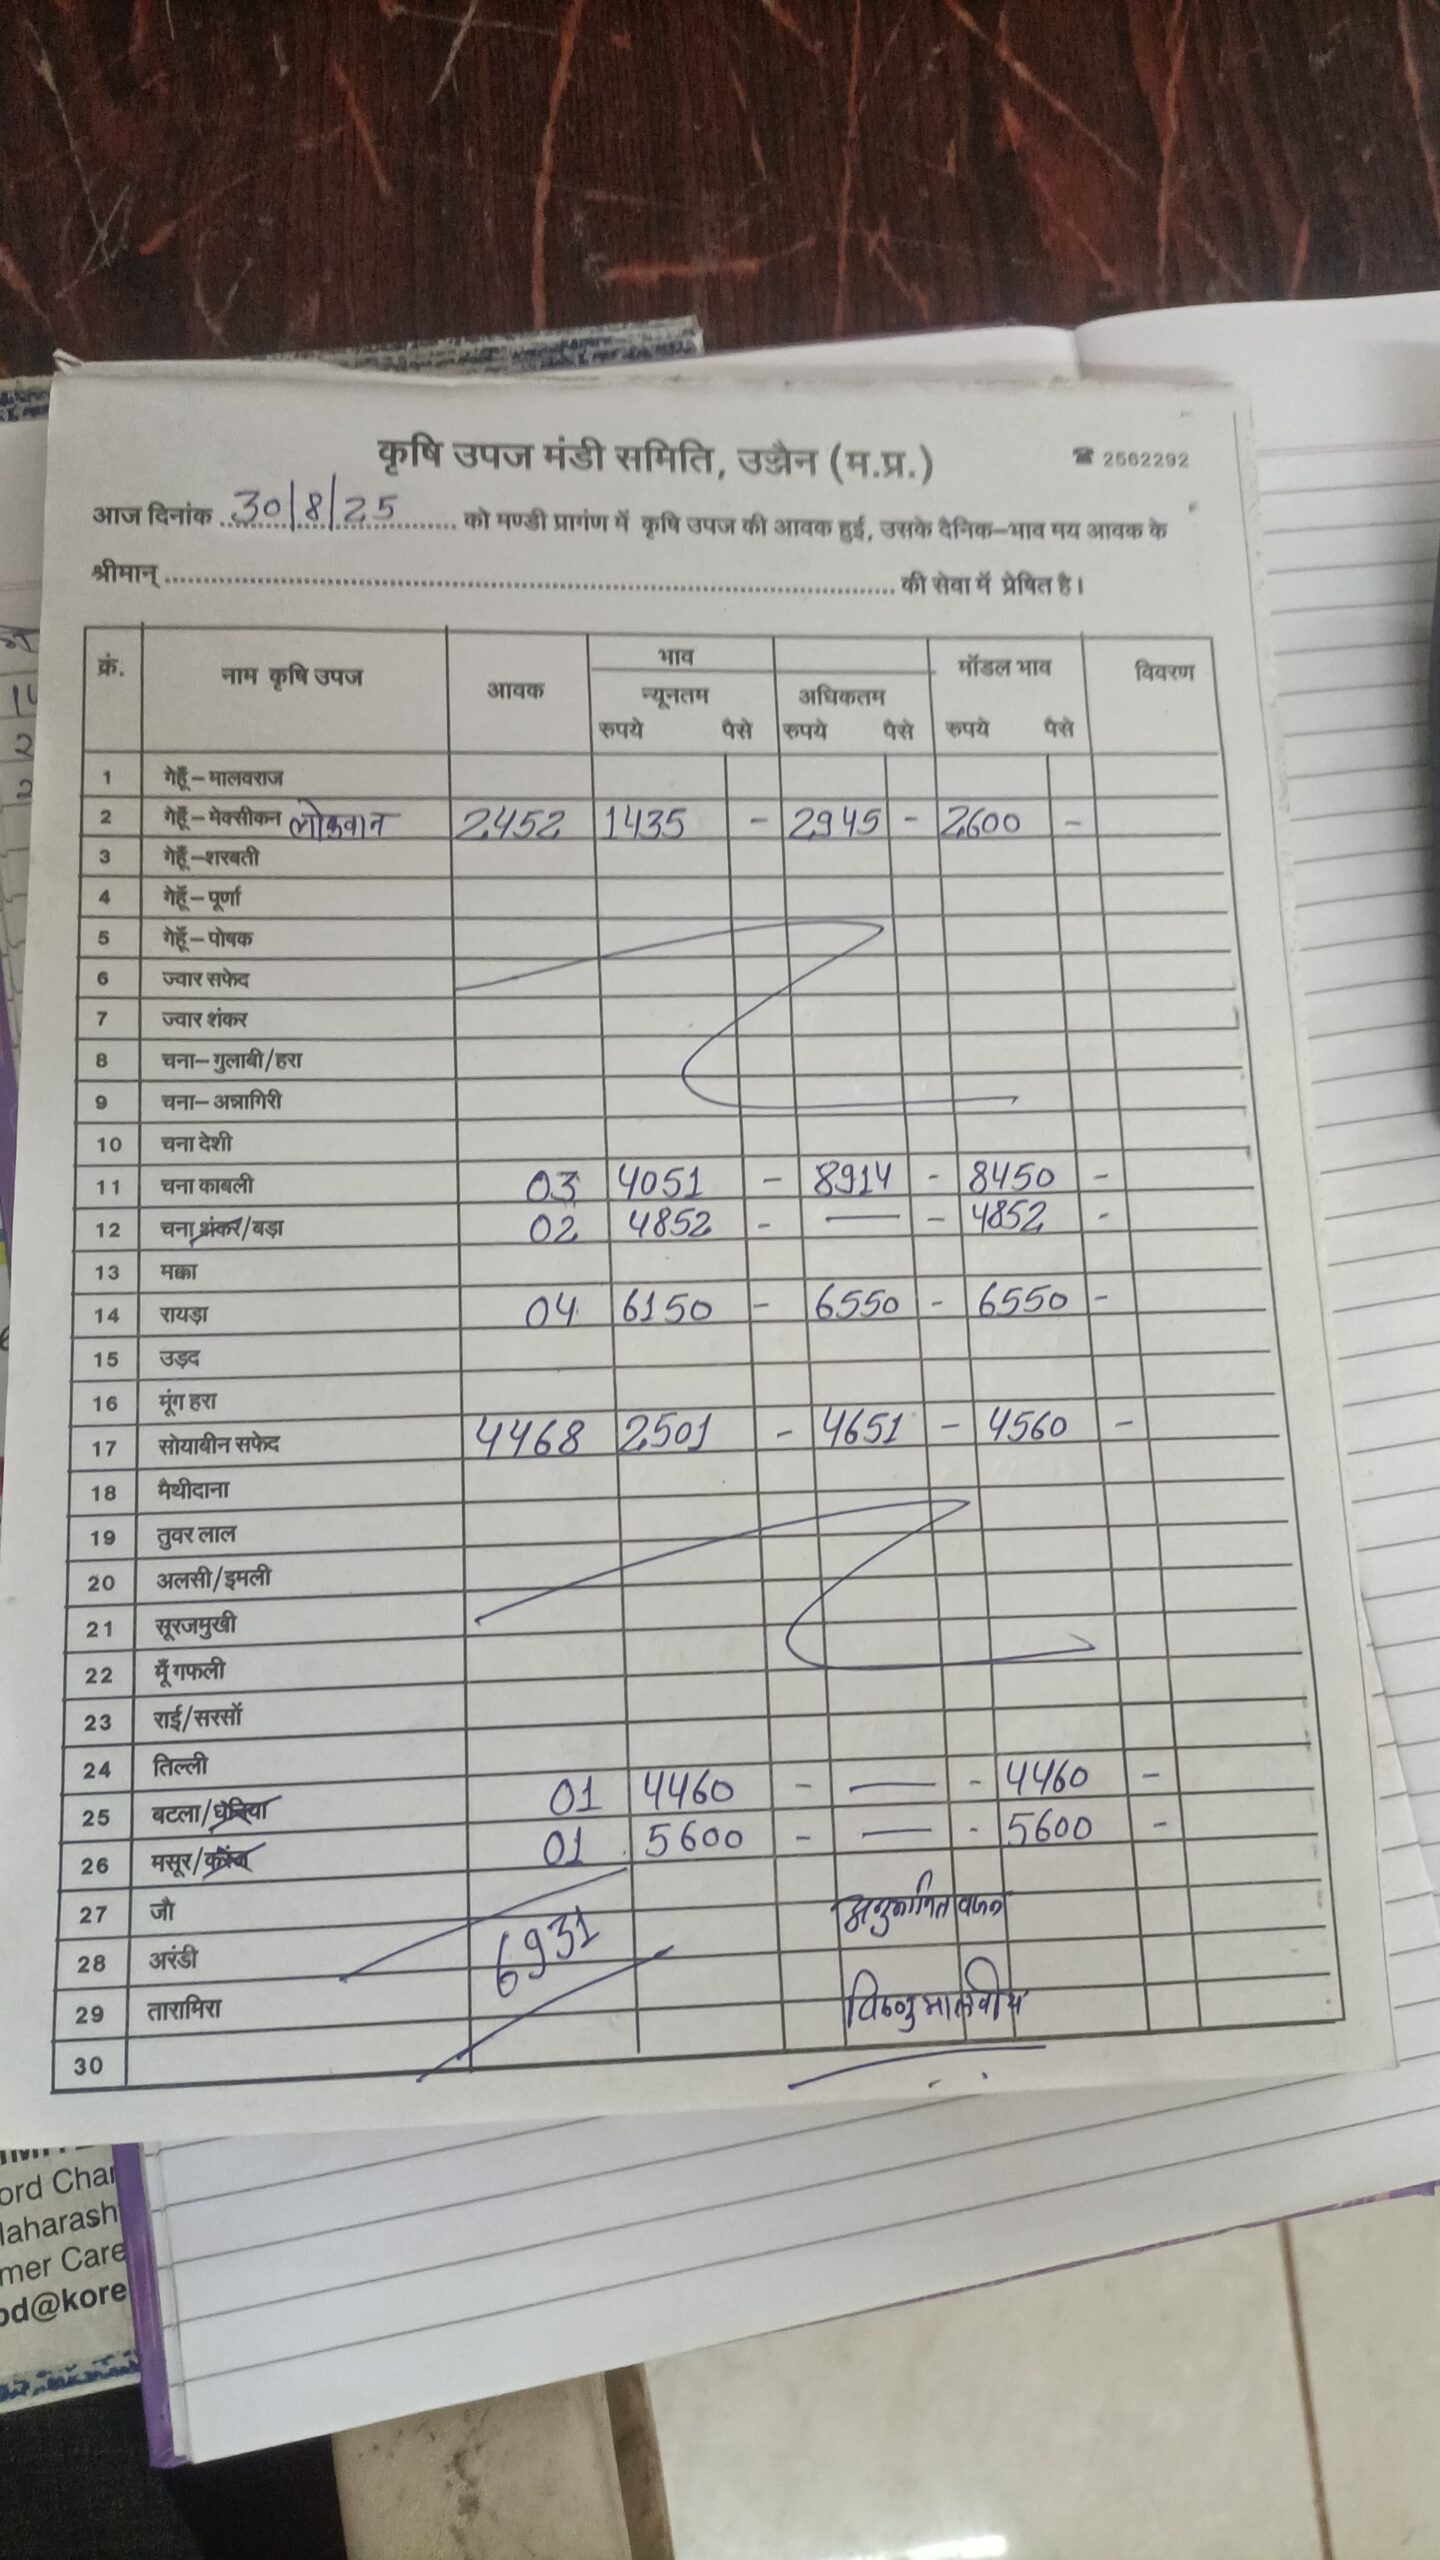 कृषि उपज मंडी समिति, उज्जैन (म.प्र.) ☎ 2562292
आज दिनांक 30/8/25 को मण्डी प्रागंण में कृषि उपज की आवक हुई, उसके दैनिक-भाव मय आवक के
श्रीमान् ........ की सेवा में प्रेषित है।
क्रं. नाम कृषि उपज आवक भाव मॉडल भाव विवरण
न्यूनतम अधिकतम
रुपये पैसे रुपये पैसे रुपये पैसे
1 गेहूँ-मालवराज
2 गेहूँ-मेक्सीकन लोकवान 2452 1435 - 2945 - 2600 -
3 गेहूँ-शरबती
4 गेहूँ-पूर्णा
5 गेहूँ-पोषक
6 ज्वार सफेद
7 ज्वार शंकर
8 चना-गुलाबी/हरा
9 चना-अन्नागिरी
10 चना देशी
11 चना काबली 03 4051 - 8914 - 8450 -
12 चना शंकर/बड़ा 02 4852 - — - 4852 -
13 मक्का
14 रायड़ा 04 6150 - 6550 - 6550 -
15 उड़द
16 मूंग हरा
17 सोयाबीन सफेद 4468 2501 - 4651 - 4560 -
18 मैथीदाना
19 तुवर लाल
20 अलसी/इमली
21 सूरजमुखी
22 मूँगफली
23 राई/सरसों
24 तिल्ली
25 बटला/धनिया 01 4460 - — - 4460 -
26 मसूर/करंज 01 5600 - — - 5600 -
27 जौ अनुमानित वजन
28 अरंडी 6931
29 तारामिरा विष्णु मालवीय
30
ord Char
laharash
mer Care
od@kore